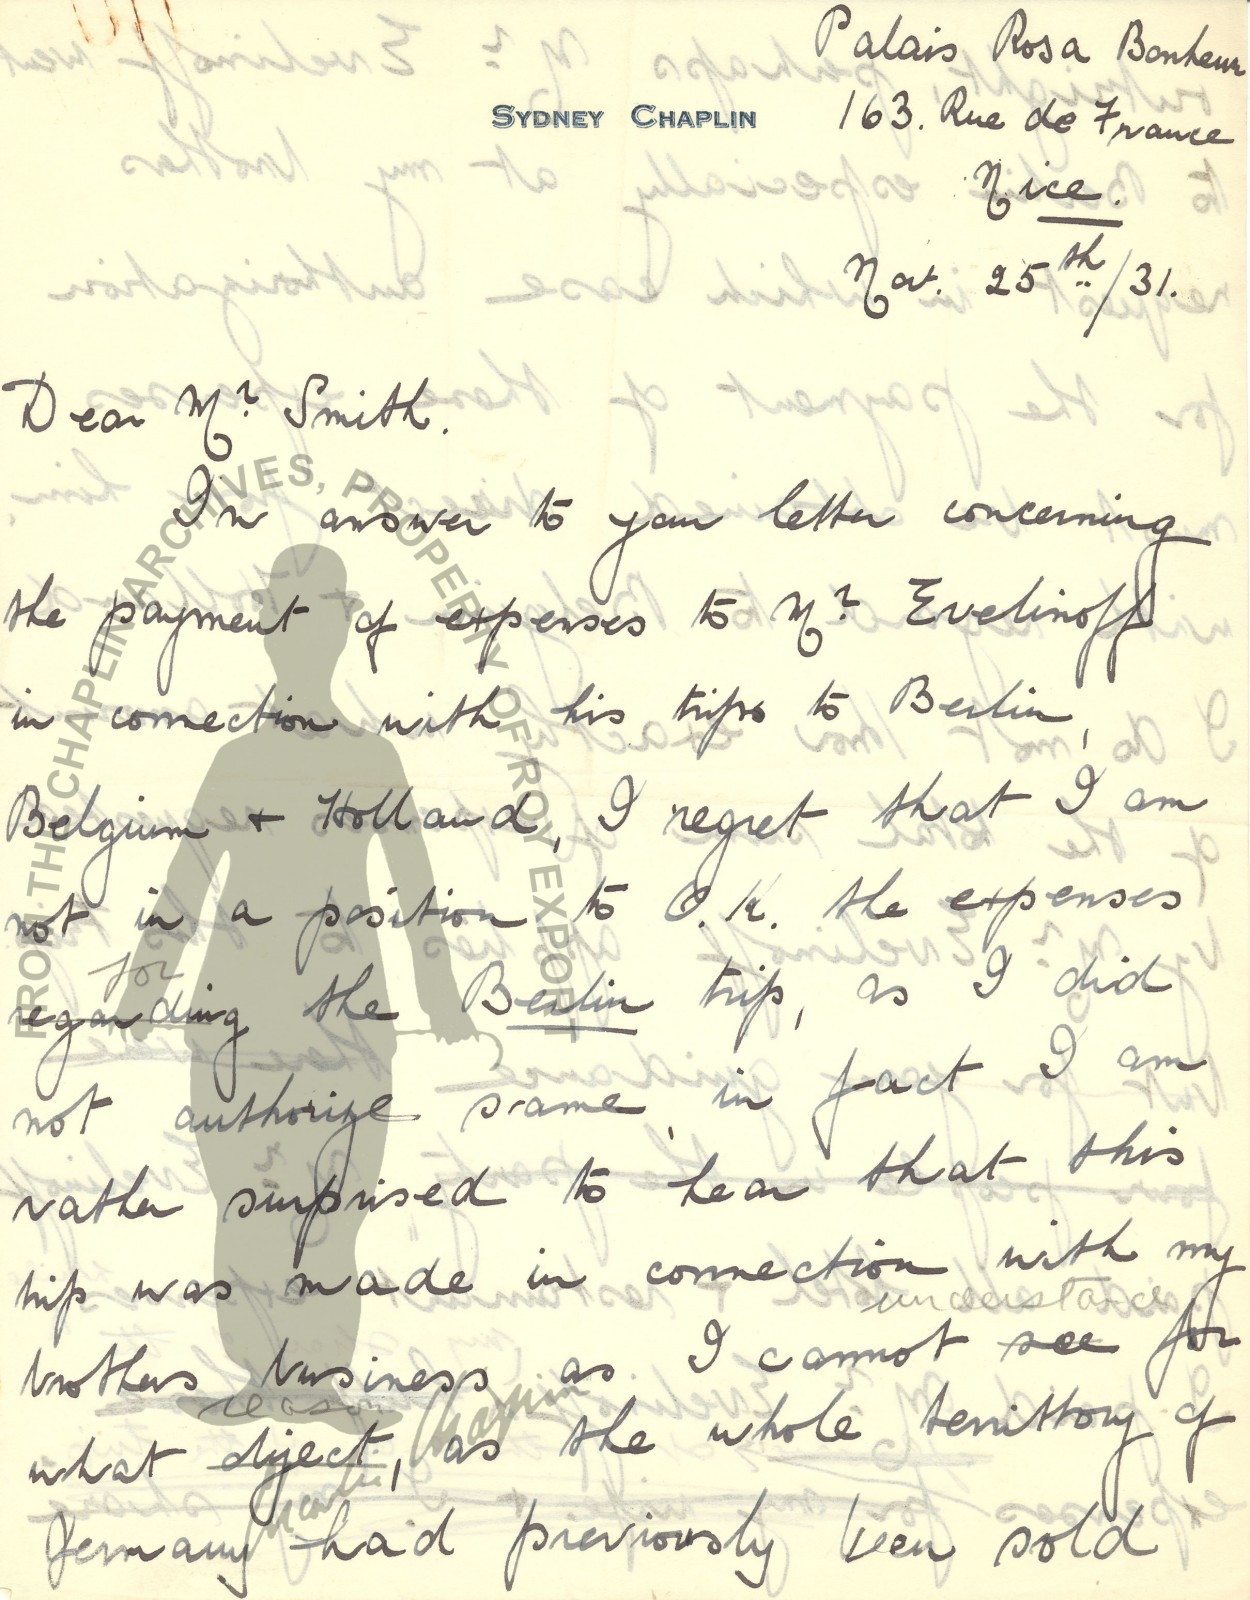 Palais Rosa Bonheur
SYDNEY CHAPLIN
163. Rue de France
Nice.
Nov. 25th/31.
Dear Mr. Smith.
In answer to your letter concerning
the payment of expenses to Mr. Evelinoff
in connection with his trips to Berlin,
Belgium + Holland, I regret that I am
not in a position to O.K. the expenses
for
regarding the Berlin trip, as I did
not authorize same, in fact I am
rather surprised to hear that this
trip was made in connection with my
understand
brothers business as I cannot see for
reason
what object, as the whole territtory of
Germany had previously been sold
FROM THE CHAPLIN ARCHIVES, PROPERTY OF ROY EXPORT